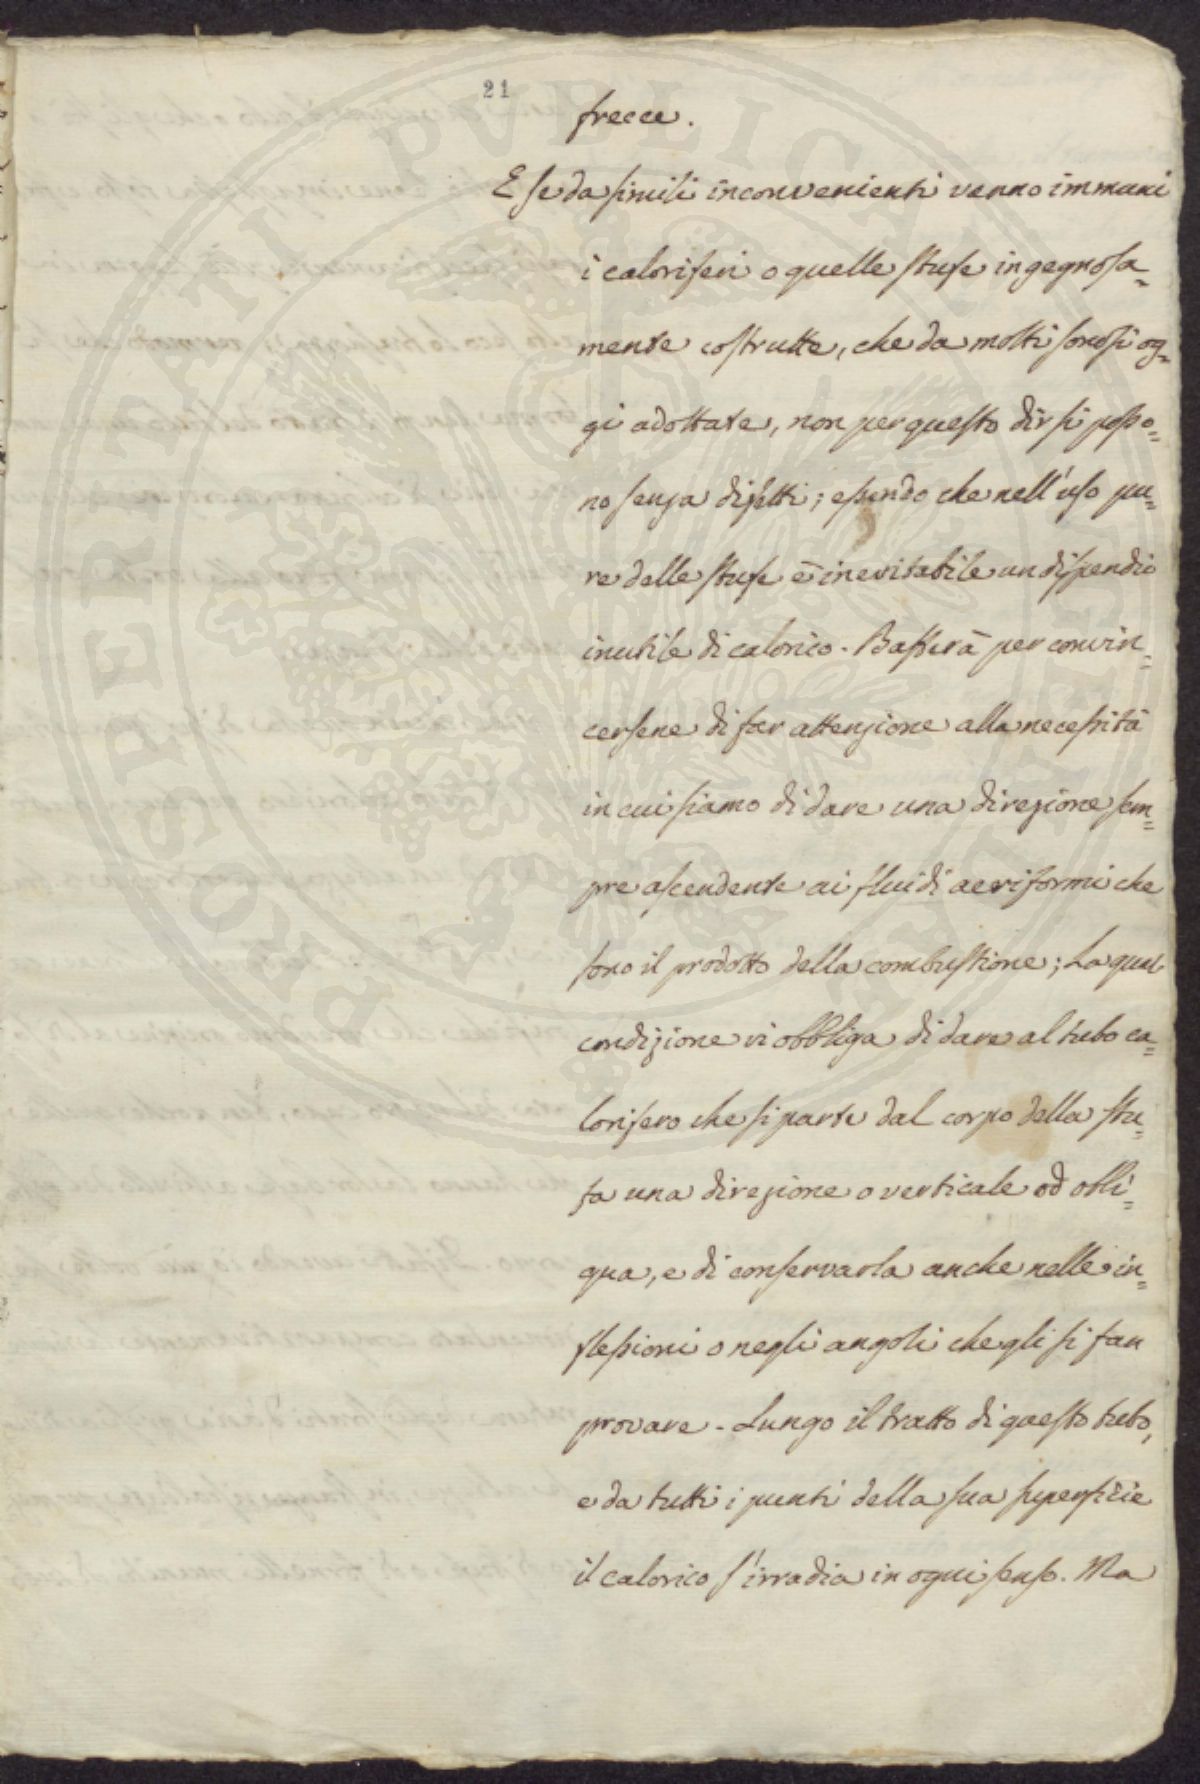 21
frecce.
E se da simili inconvenienti vanno immuni
i caloriferi o quelle stufe ingegnosa=
mente costrutte, che da molti sonosi og=
gi adottate, non per questo dirsi posso=
no senza difetti; essendo che nell'uso pu=
re delle stufe è inevitabile un dispendio
inutile di calorico. Basterà per convin=
cersene di far attenzione alla necessità
in cui siamo di dare una direzione sem=
pre ascendente ai fluidi aeriformi che
sono il prodotto della combustione; La qual
condizione vi obbliga di dare al tubo ca=
lorifero che si parte dal corpo della stu=
fa una direzione o verticale od obli=
qua, e di conservarla anche nelle in=
flessioni o negli angoli che gli si fan
provare. Lungo il tratto di questo tubo,
e da tutti i punti della sua superficie
il calorico s'irradia in ogni senso. Ma
PROSPERITATI PVBLICAE